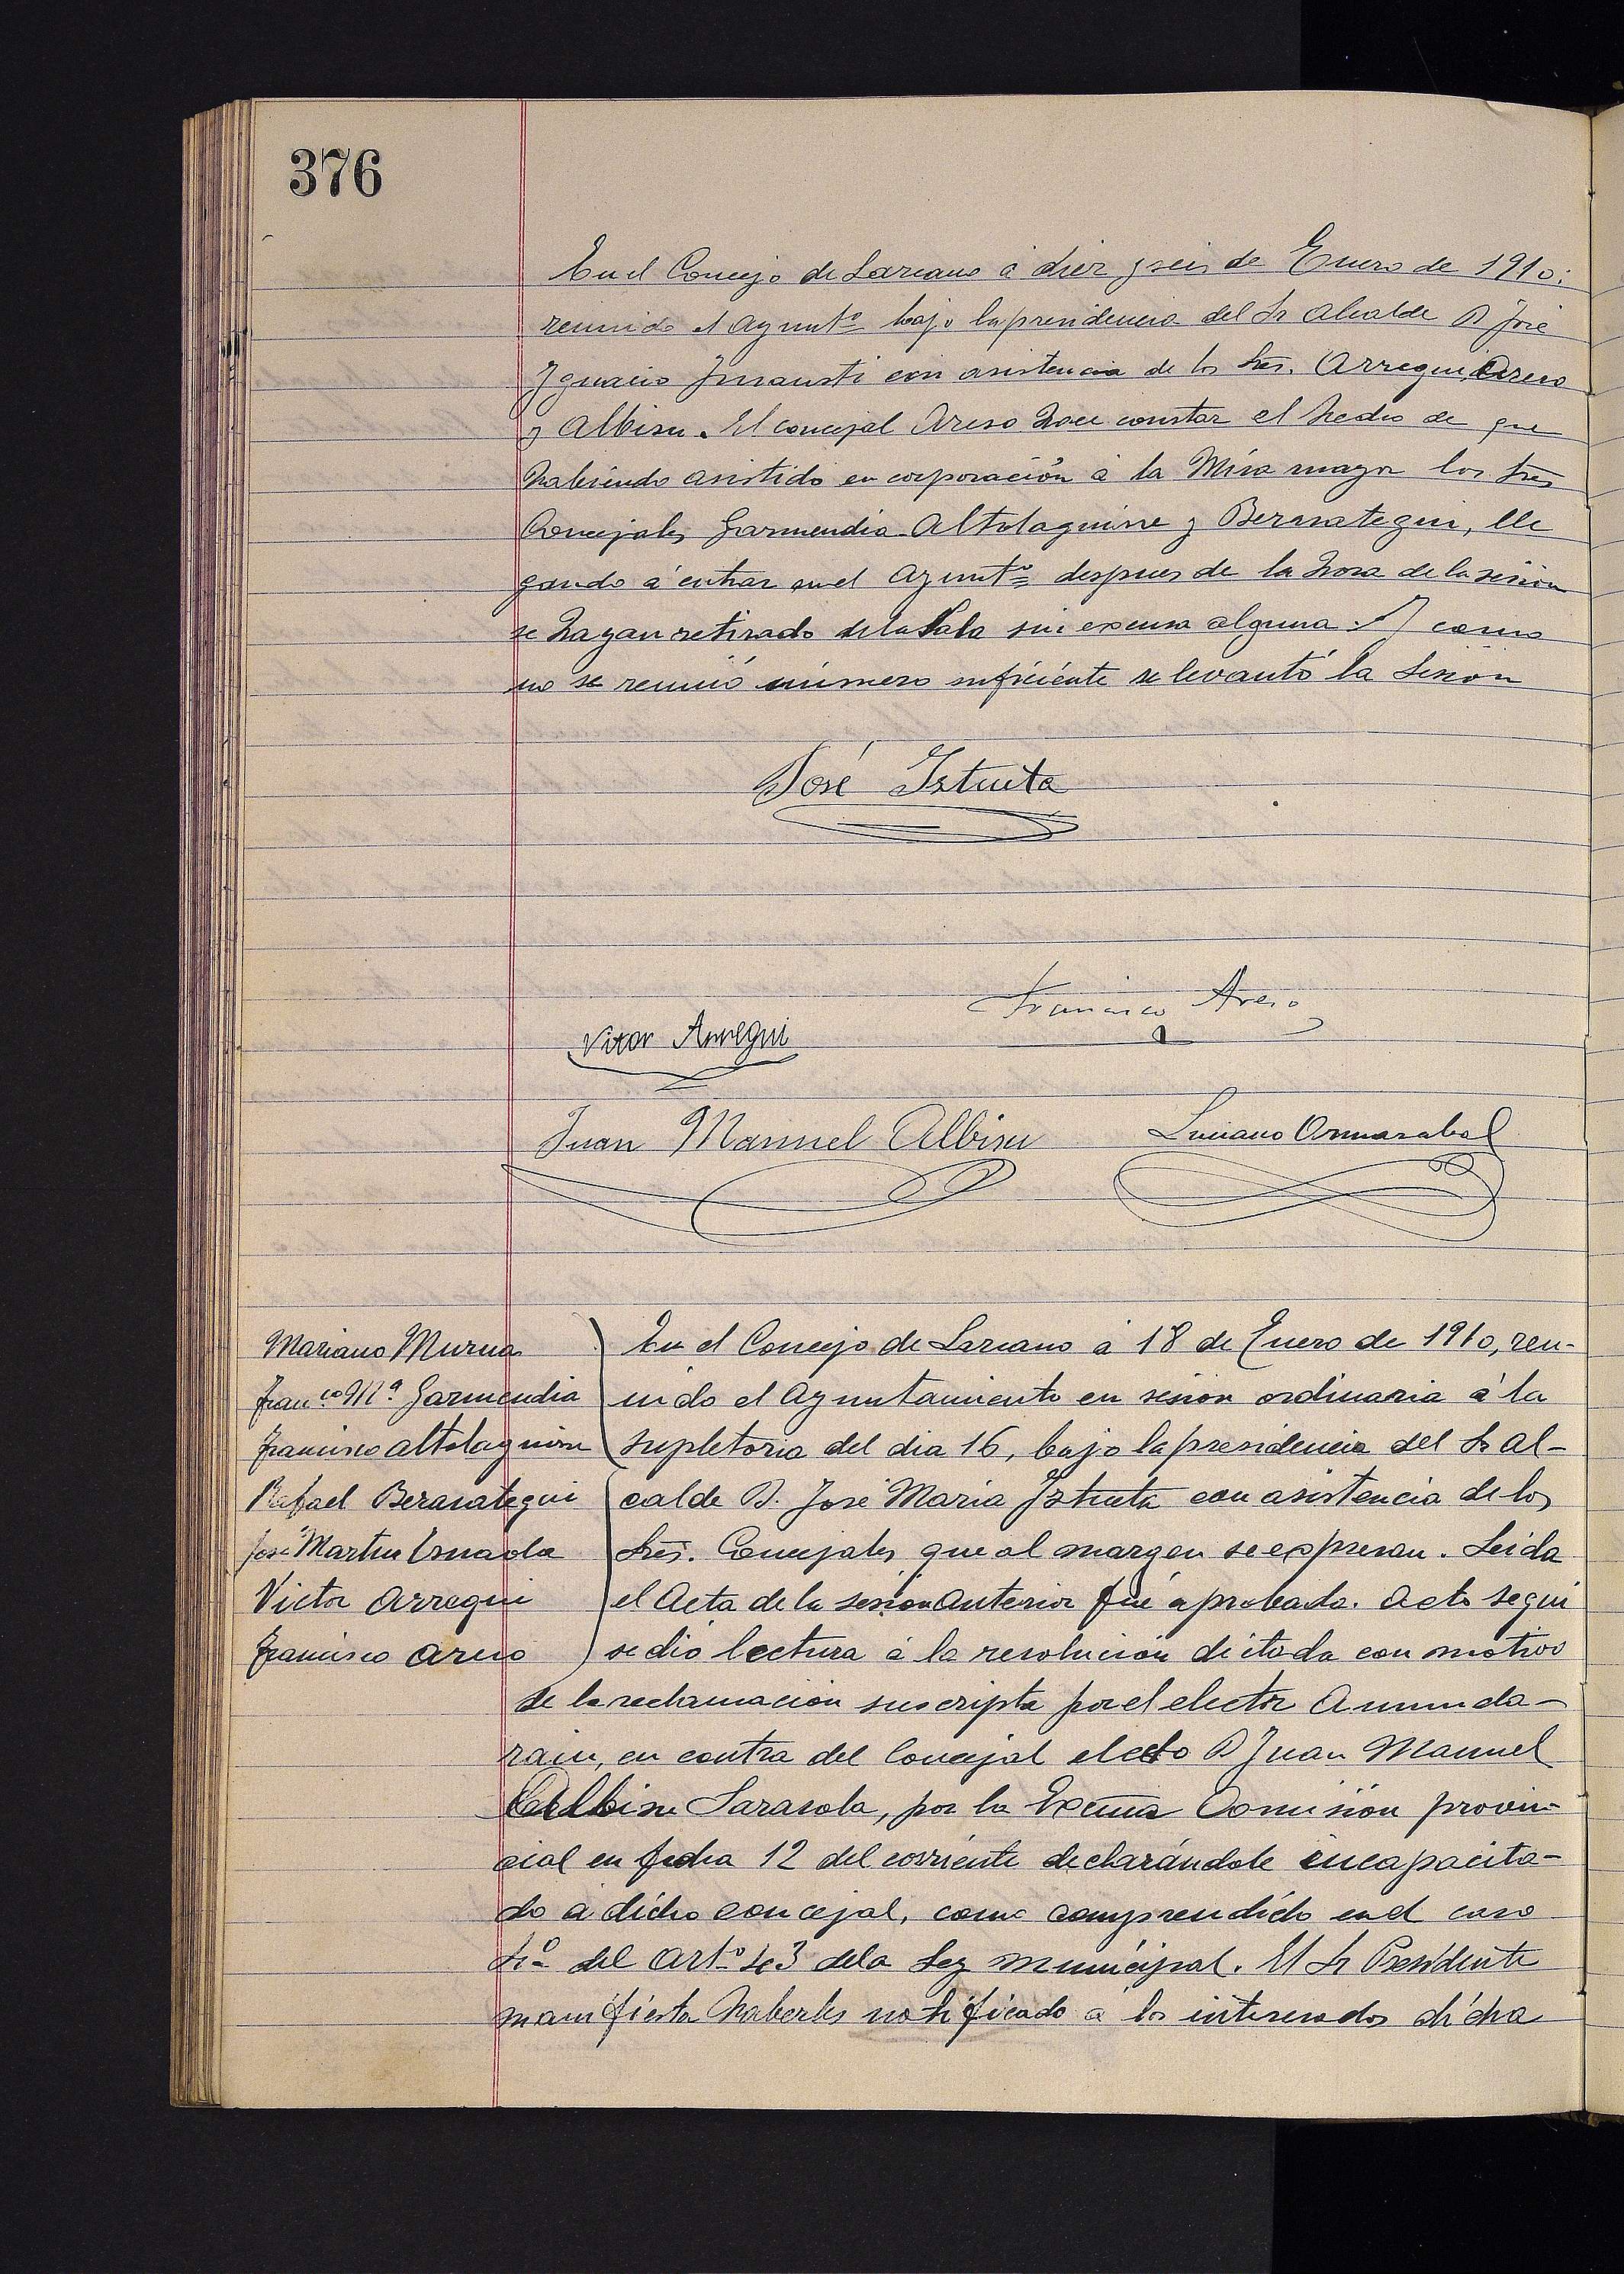 376
En el Concejo de Lazcano á diez y seis de Enero de 1910:
reunido el Ayuntº bajo la presidencia del Sr Alcalde D José
Ignacio Insausti con asistencia de los Sres. Arregui, Areso
y Albisu. El concejal Areso hace constar el hecho de que
habiendo asistido en corporación á la Misa mayor los Sres
Concejales Garmendia Altolaguirre y Berasategui, lle
gando á entrar en el Ayuntº despues de la hora de la sesión
se hayan retirado de la Sala sin excusa alguna. Y como
no se reunió número suficiente se levantó la Sesion
José Iztueta
Francisco Areso
Vitor Arregui
Juan Manuel Albisu
Luciano Ormazabal
Mariano Murua
Franco Mª Garmendia
Francisco Altolaguirre
Rafael Berasategui
José Martin
Victor Arregui
Francisco Areso
En el Concejo de Lazcano á 18 de Enero de 1910, reu-
nido el Ayuntamiento en sesion ordinaria á la
supletoria del dia 16, bajo la presidencia del Sr Al-
calde D. José Maria Iztueta con asistencia de los
Sres. Concejales que al margen se expresan. Leida
el Acta de la sesion anterior fué aprobada. Acto segui
se dió lectura á la resolución dictada con motivo
de la reclamacion suscripta por el elector Amunda-
rain, en contra del Concejal electo D Juan Manuel
Albisu Sarasola, por la Excma Comisión provin-
cial en fecha 12 del corriente declarándole incapacita-
do á dicho concejal, como comprendido en el caso
4º del Artº 43 de la Ley municipal. El Sr Presidente
manifiesta haberles notificado á los interesados dicha